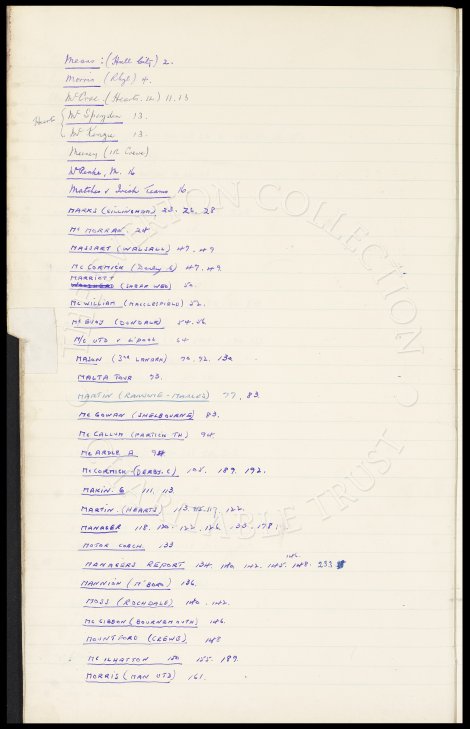 Means : (Hull City) 2.
Morris (Rhyl) 4.
Hearts
Mc Spaydon 13.
Mc Kenzie 13.
Matches v Irish Teams 16
MARKS (GILLINGHAM) 23. 26. 28
Mc MORRAN. 28
MASSART (WALSALL) 47. 49
Mc CORMICK (Derby C) 47. 49.
MARRIOTT
(SHEFF WED) 50.
McWILLIAM (MACCLESFIELD) 52.
Mc EVOY (DUNDALK) 54. 56.
M/C UTD v L'pool 64
MASON (3RD LANARK) 70. 72. 130
MALTA TOUR 73.
MARTIN (RAWSUNE - MARLES) 77. 83.
Mc GOWAN (SHELBOURNE) 83.
Mc CALLUM (PARTICK TH) 94
Mc ARDLE A. 98
McCORMICK (DERBY. C) 105. 189. 192.
MAKIN. G 111. 113.
MARTIN. (HEARTS) 113. 115. 117. 122.
MANAGER 118. 120. 122. 126. 133. 178.
MOTOR COACH. 133
146.
MANAGERS REPORT 134. 140. 142. 145. 148. 233
MANNION (M'BORO) 136.
MOSS (ROCHDALE) 140. 142.
Mc GIBBON (BOURNEMOUTH) 146.
MOUNTFORD (CREWE) 148
Mc ILHATTON 150 155. 189.
MORRIS (MAN UTD) 161.
THE EVERTON COLLECTION
CHARITABLE TRUST